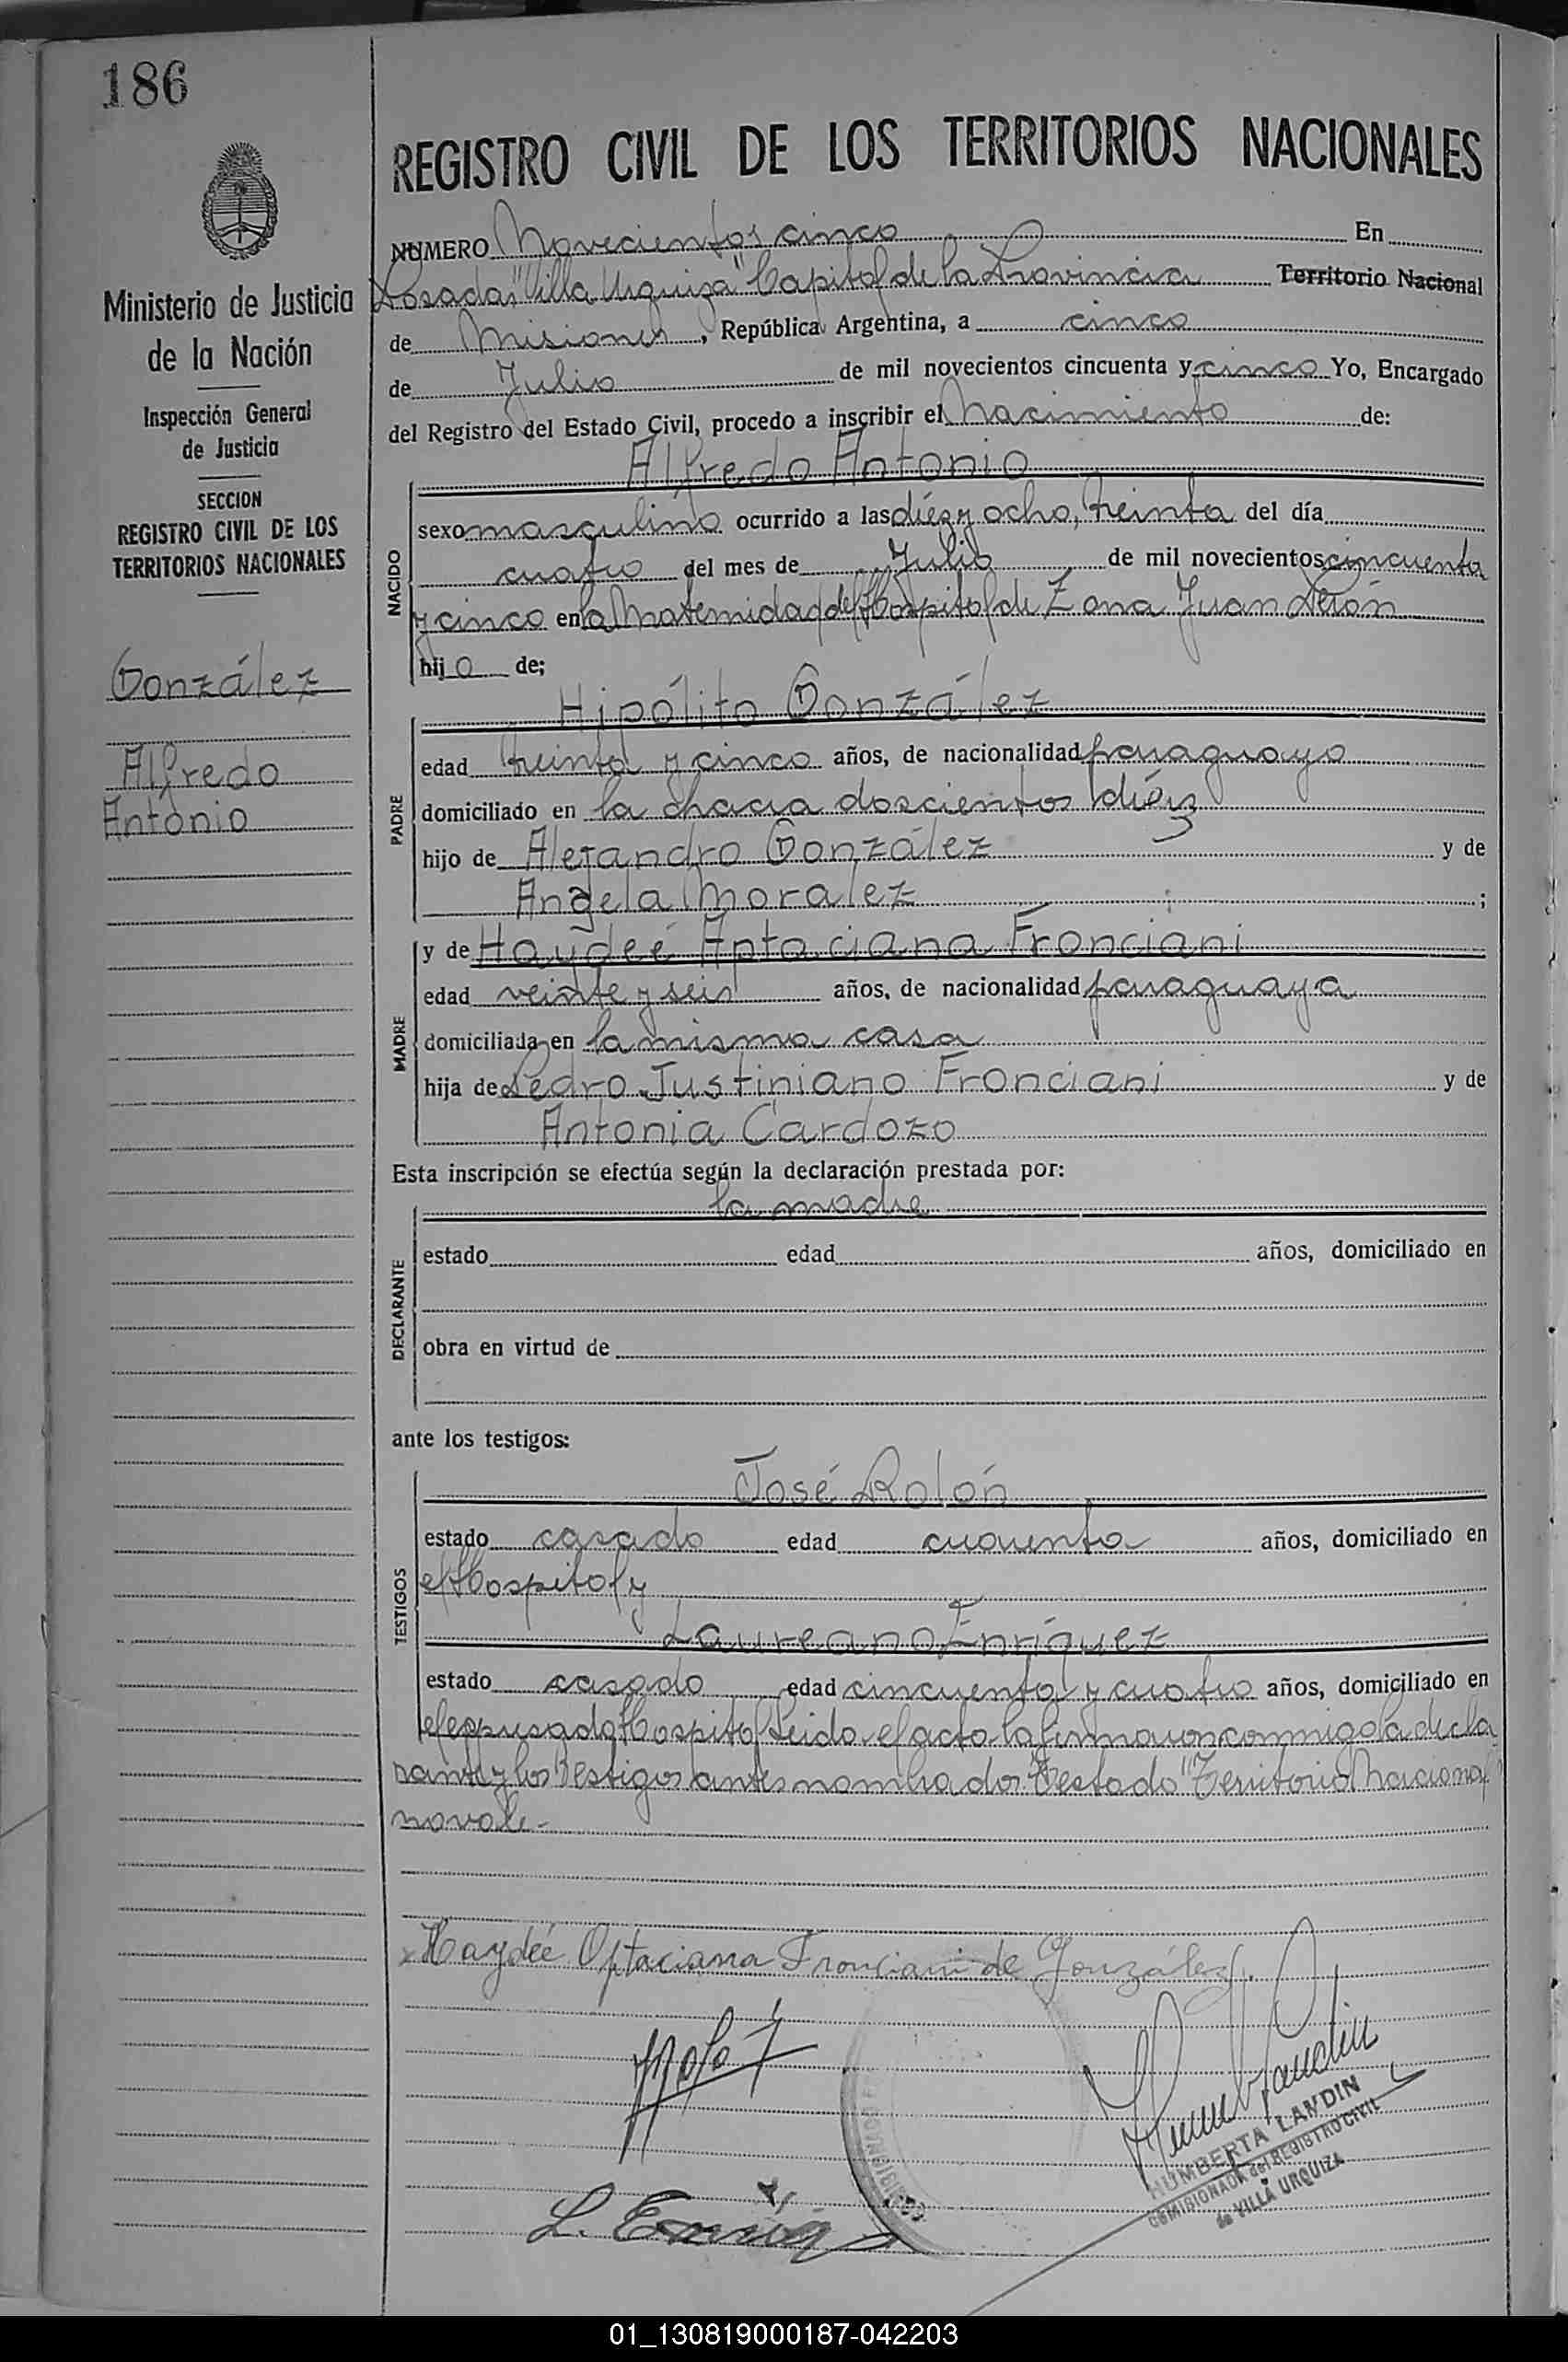 186
REGISTRO CIVIL DE LOS TERRITORIOS NACIONALES
Ministerio de Justicia
de la Nación
Inspección General
de Justicia
SECCION
REGISTRO CIVIL DE LOS
TERRITORIOS NACIONALES
González
Alfredo
Antonio
NUMERO Novecientos cinco En
Posadas "Villa Urquiza" Capital de la Provincia Territorio Nacional
de Misiones, República Argentina, a cinco
de Julio de mil novecientos cincuenta y cinco Yo, Encargado
del Registro del Estado Civil, procedo a inscribir el Nacimiento de:
Alfredo Antonio
NACIDO
sexo masculino ocurrido a las diéz y ocho, treinta del día
cuatro del mes de Julio de mil novecientos cincuenta
y cinco en la Maternidad del Hospital de Zona Juan Perón
hijo de;
Hipólito González
PADRE
edad treinta y cinco años, de nacionalidad paraguayo
domiciliado en la chacra doscientos diéz
hijo de Alejandro González y de
Angela Moralez ;
y de Haydeé Aptaciana Fronciani
MADRE
edad veinte y seis años, de nacionalidad paraguaya
domiciliada en la misma casa
hija de Pedro Justiniano Fronciani y de
Antonia Cardozo
Esta inscripción se efectúa según la declaración prestada por:
la madre
DECLARANTE
estado edad años, domiciliado en
obra en virtud de
ante los testigos:
José Rolón
TESTIGOS
estado casado edad cuarenta años, domiciliado en
el Hospital y
Laureano Enríquez
estado casado edad cincuenta y cuatro años, domiciliado en
el expresado Hospital Leida el acta la firmaron conmigo la decla
rante y los testigos antes nombrados. Testado "Territorio Nacional"
no vale.-
Haydeé Optaciana Fronciani de González.
L. Enriq
HUMBERTA LANDIN
COMISIONADA del REGISTRO CIVIL
de VILLA URQUIZA
01_130819000187-042203